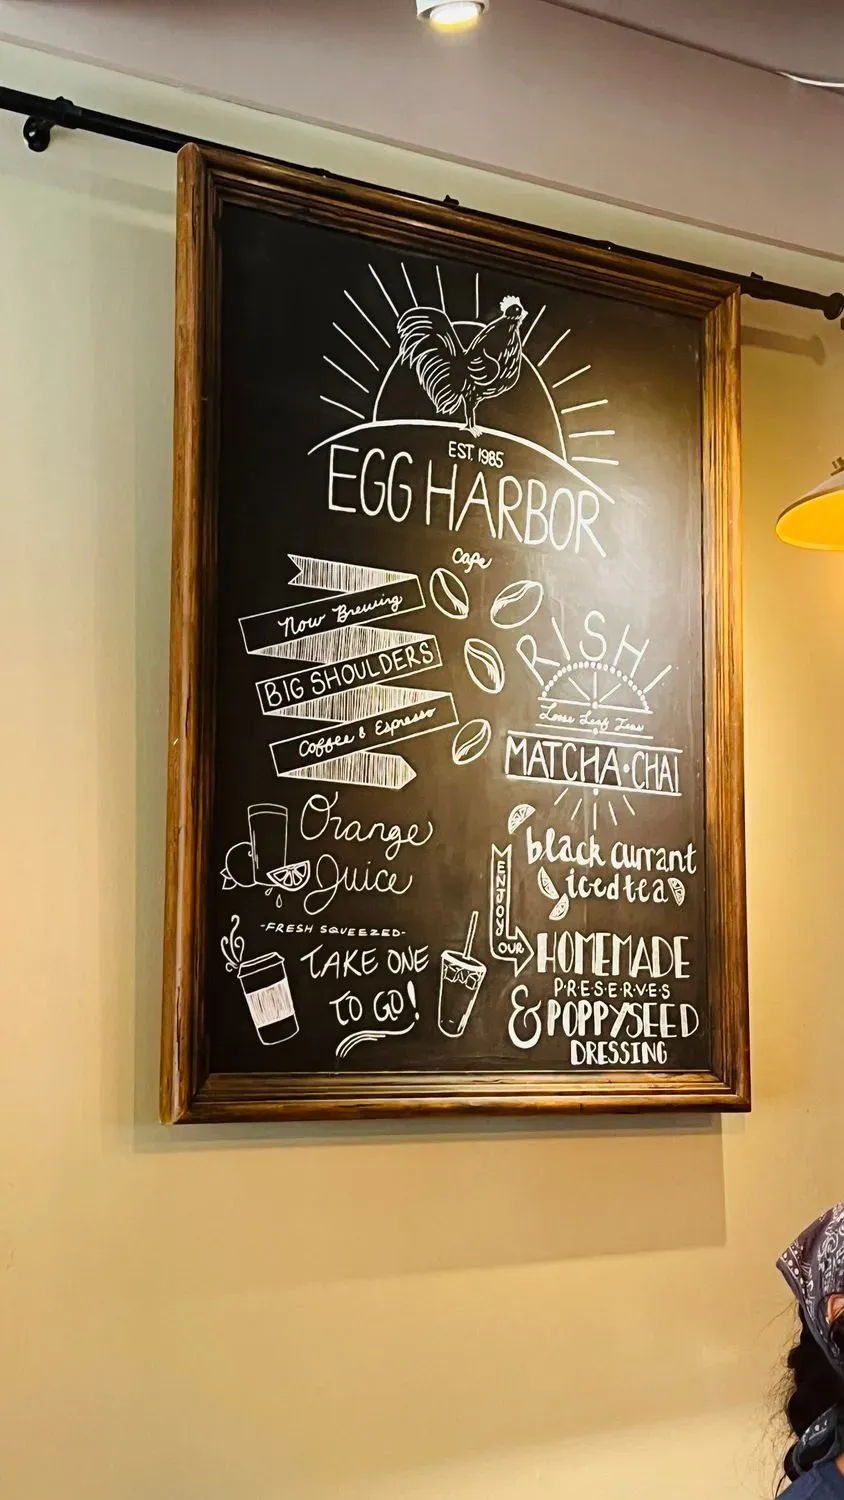 EST. 1985
EGG HARBOR
Cafe
Now Brewing
BIG SHOULDERS
Coffee & Espresso
RISHI
Loose Leaf Teas
MATCHA•CHAI
Orange
Juice
-FRESH SQUEEZED-
TAKE ONE
TO GO!
black currant
iced tea
ENJOY
OUR
HOMEMADE
P·R·E·S·E·R·V·E·S
& POPPYSEED
DRESSING